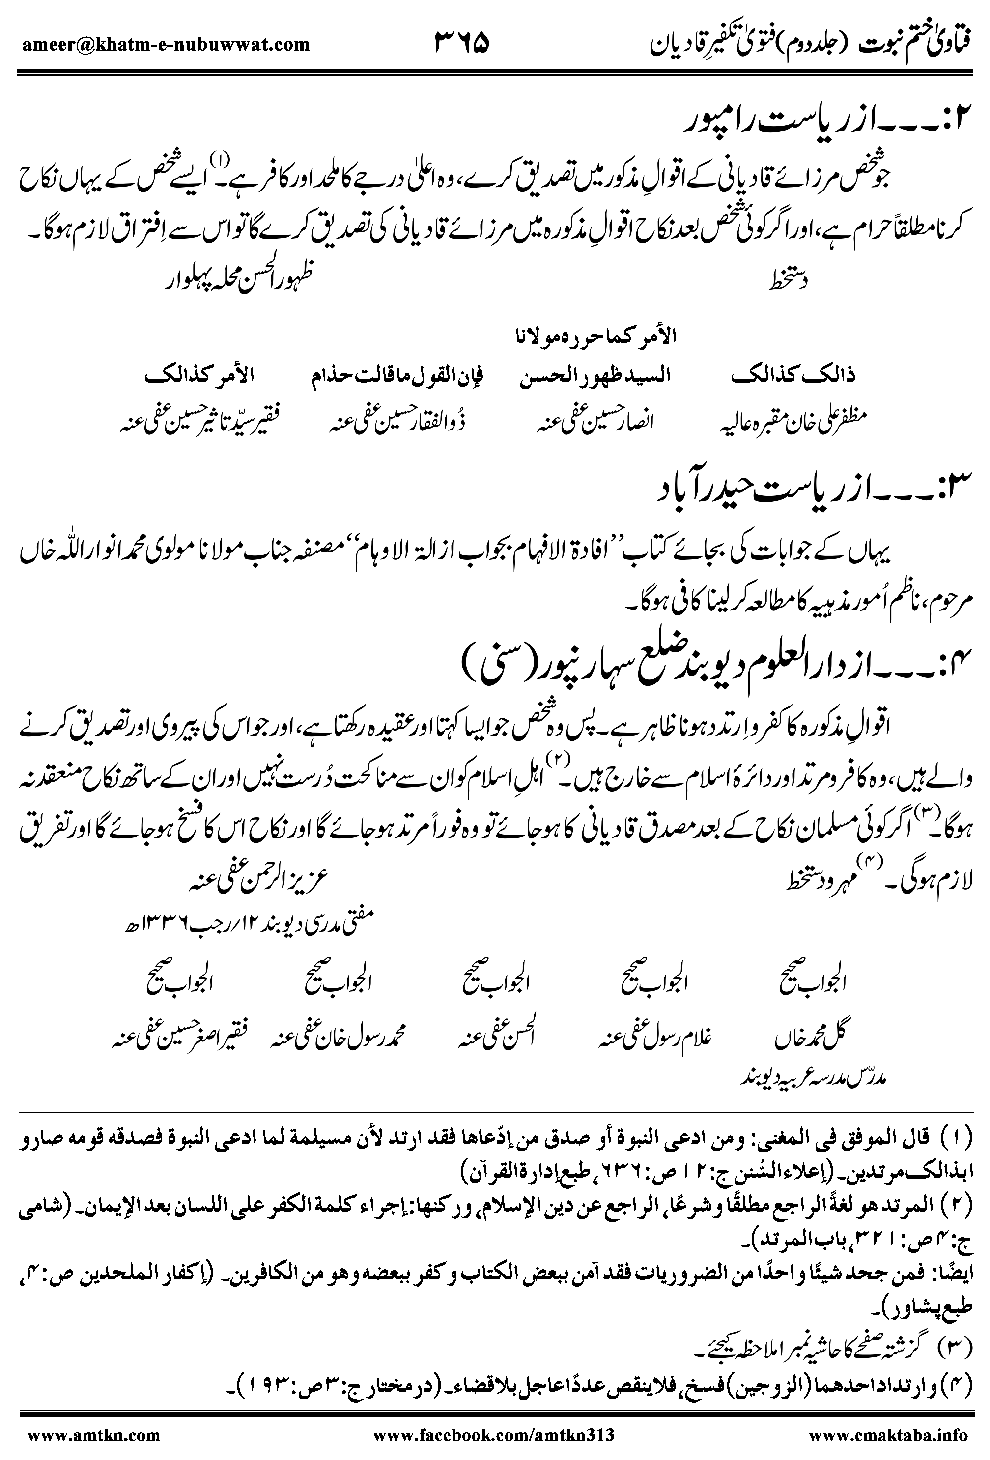 ameer@khatm-e-nubuwwat.com ۳۶۵ فتاویٰ ختم نبوت (جلد دوم) فتویٰ تکفیرِ قادیان
۲:۔۔۔از ریاست رامپور
جو شخص مرزائے قادیانی کے اقوالِ مذکور میں تصدیق کرے، وہ اعلیٰ درجے کا ملحد اور کافر ہے۔(۱) ایسے شخص کے یہاں نکاح
کرنا مطلقاً حرام ہے، اور اگر کوئی شخص بعد نکاح اقوالِ مذکورہ میں مرزائے قادیانی کی تصدیق کرے گا تو اس سے اِفتراق لازم ہوگا۔
دستخط ظہور الحسن محلہ پہلوار
الأمر كما حرره مولانا
ذالك كذالك السيد ظهور الحسن فإن القول ما قالت حذام الأمر كذالك
مظفر علی خان مقبرہ عالیہ انصار حسین عفی عنہ ذُوالفقار حسین عفی عنہ فقیر سیّد تاثیر حسین عفی عنہ
۳:۔۔۔از ریاست حیدرآباد
یہاں کے جوابات کی بجائے کتاب ’’افادۃ الافہام بجواب ازالۃ الاوہام‘‘ مصنفہ جناب مولانا مولوی محمد انوار اللہ خاں
مرحوم، ناظم اُمور مذہبیہ کا مطالعہ کرلینا کافی ہوگا۔
۴:۔۔۔از دارالعلوم دیوبند ضلع سہارنپور (سنی)
اقوالِ مذکورہ کا کفر و اِرتداد ہونا ظاہر ہے۔ پس وہ شخص جو ایسا کہتا اور عقیدہ رکھتا ہے، اور جو اس کی پیروی اور تصدیق کرنے
والے ہیں، وہ کافر و مرتد اور دائرۂ اسلام سے خارج ہیں۔(۲) اہلِ اسلام کو ان سے مناکحت دُرست نہیں اور ان کے ساتھ نکاح منعقد نہ
ہوگا۔(۳) اگر کوئی مسلمان نکاح کے بعد مصدق قادیانی کا ہوجائے تو وہ فوراً مرتد ہوجائے گا اور نکاح اس کا فسخ ہوجائے گا اور تفریق
لازم ہوگی۔(۴) مہر و دستخط عزیز الرحمن عفی عنہ
مفتی مدرسی دیوبند ۱۲/رجب ۱۳۳۶ھ
الجواب صحیح الجواب صحیح الجواب صحیح الجواب صحیح الجواب صحیح
گل محمد خاں غلام رسول عفی عنہ الحسن عفی عنہ محمد رسول خان عفی عنہ فقیر اصغر حسین عفی عنہ
مدرّس مدرسہ عربیہ دیوبند
(۱) قال الموفق فى المغنى: ومن ادعى النبوة أو صدق من إدّعاها فقد ارتد لأن مسيلمة لما ادعى النبوة فصدقه قومه صارو
ابذالك مرتدين۔ (إعلاء السُّنن ج:۱۲ ص:۶۳۶، طبع إدارة القرآن)
(۲) المرتد هو لغةً الراجع مطلقًا وشرعًا، الراجع عن دين الإسلام، وركنها: إجراء كلمة الكفر على اللسان بعد الإيمان۔ (شامى
ج:۴ ص:۳۲۱، باب المرتد)۔
ايضًا: فمن جحد شيئًا واحدًا من الضروريات فقد آمن ببعض الكتاب وكفر ببعضه وهو من الكافرين۔ (إكفار الملحدين ص:۴،
طبع پشاور)۔
(۳) گزشتہ صفحے کا حاشیہ نمبر ۱ ملاحظہ کیجئے۔
(۴) وارتداد احدهما (الزوجين) فسخ، فلاينقص عددًا عاجل بلا قضاء۔ (درمختار ج:۳ ص:۱۹۳)۔
www.amtkn.com www.facebook.com/amtkn313 www.cmaktaba.info